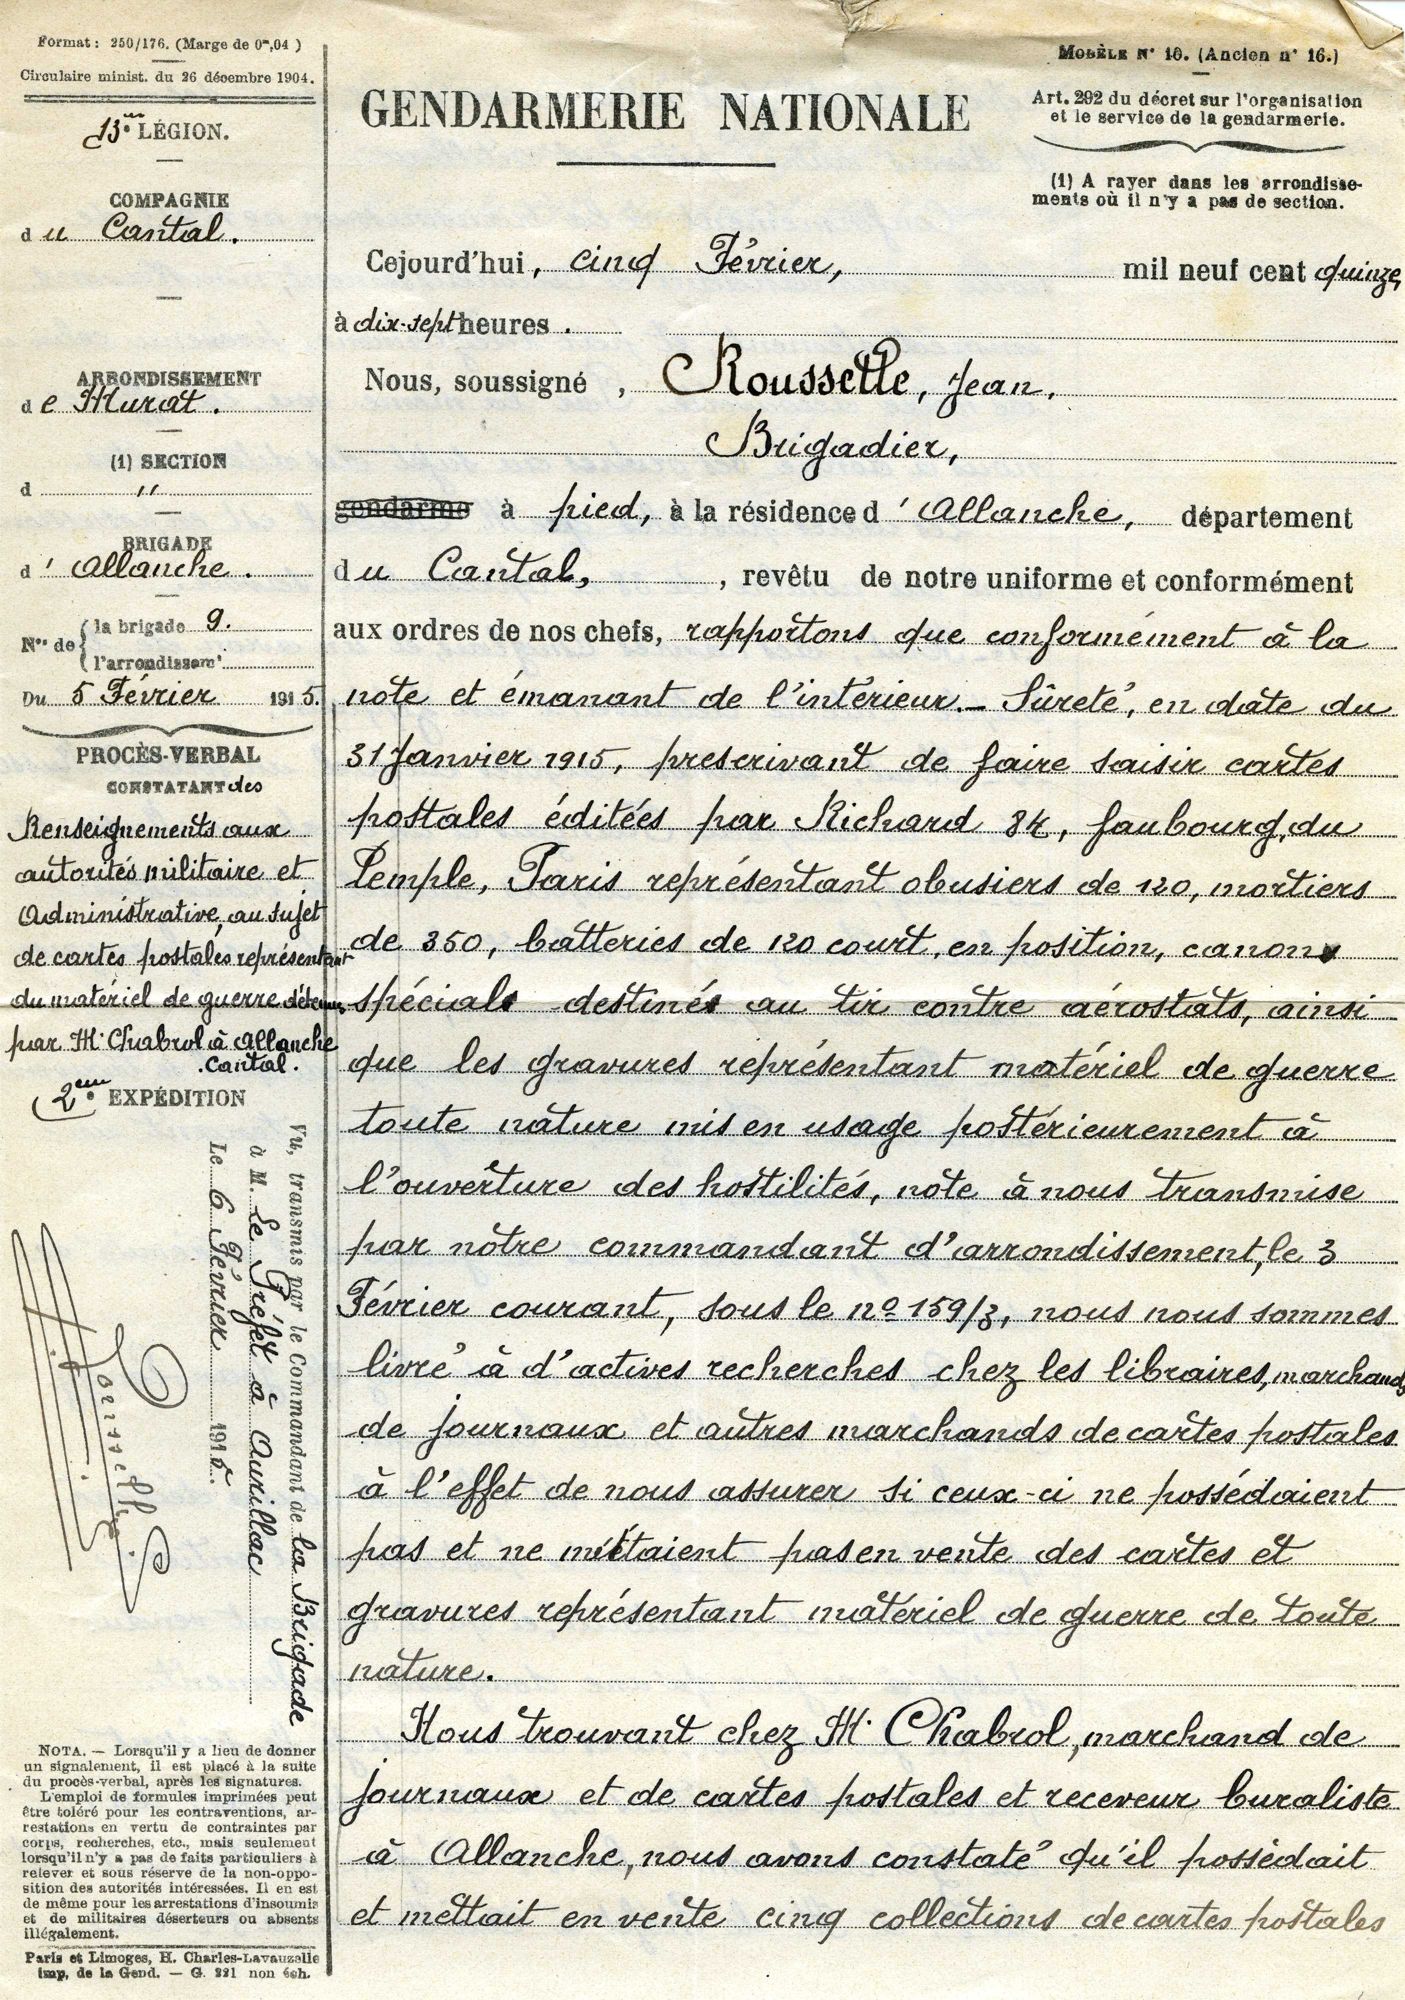 Format : 250/176. (Marge de 0m,04 )
Circulaire minist. du 26 décembre 1904.
13me LÉGION.
COMPAGNIE
du Cantal.
ARRONDISSEMENT
de Murat.
(1) SECTION
d "
BRIGADE
d'Allanche.
Nos de { la brigade 9.
l'arrondissemt
Du 5 Février 1915.
PROCÈS-VERBAL
CONSTATANT des
Renseignements aux
autorités militaire et
Administrative, au sujet
de cartes postales représentant
du matériel de guerre détenues
par M. Chabrol à Allanche
.Cantal.
2eme EXPÉDITION
Vu, transmis par le Commandant de la Brigade
à M. Le Préfet à Aurillac
Le 6 Février 1915.
Rousselle
NOTA. — Lorsqu'il y a lieu de donner
un signalement, il est placé à la suite
du procès-verbal, après les signatures.
L'emploi de formules imprimées peut
être toléré pour les contraventions, ar-
restations en vertu de contraintes par
corps, recherches, etc., mais seulement
lorsqu'il n'y a pas de faits particuliers à
relever et sous réserve de la non-oppo-
sition des autorités intéressées. Il en est
de même pour les arrestations d'insoumis
et de militaires déserteurs ou absents
illégalement.
Paris et Limoges, H. Charles-Lavauzelle
imp. de la Gend. — G. 221 non éch.
GENDARMERIE NATIONALE
MODÈLE N° 10. (Ancien n° 16.)
Art. 292 du décret sur l'organisation
et le service de la gendarmerie.
(1) A rayer dans les arrondisse-
ments où il n'y a pas de section.
Cejourd'hui, cinq Février, mil neuf cent quinze,
à dix-sept heures .
Nous, soussigné , Rousselle, Jean,
Brigadier,
gendarme à pied, à la résidence d'Allanche, département
du Cantal, , revêtu de notre uniforme et conformément
aux ordres de nos chefs, rapportons que conformément à la
note et émanant de l'intérieur.- Sûreté, en date du
31 Janvier 1915, prescrivant de faire saisir cartes
postales éditées par Richard 84, faubourg, du
Temple, Paris représentant obusiers de 120, mortiers
de 350, batteries de 120 court, en position, canon
spécial destiné au tir contre aérostats, ainsi
que les gravures représentant matériel de guerre
toute nature mis en usage postérieurement à
l'ouverture des hostilités, note à nous transmise
par notre commandant d'arrondissement, le 3
Février courant, sous le no 159/3, nous nous sommes
livré à d'actives recherches chez les libraires, marchands
de journaux et autres marchands de cartes postales
à l'effet de nous assurer si ceux-ci ne possédaient
pas et ne mettaient pas en vente des cartes et
gravures représentant matériel de guerre de toute
nature.
Nous trouvant chez M. Chabrol, marchand de
journaux et de cartes postales et receveur buraliste
à Allanche, nous avons constaté qu'il possédait
et mettait en vente cinq collections de cartes postales